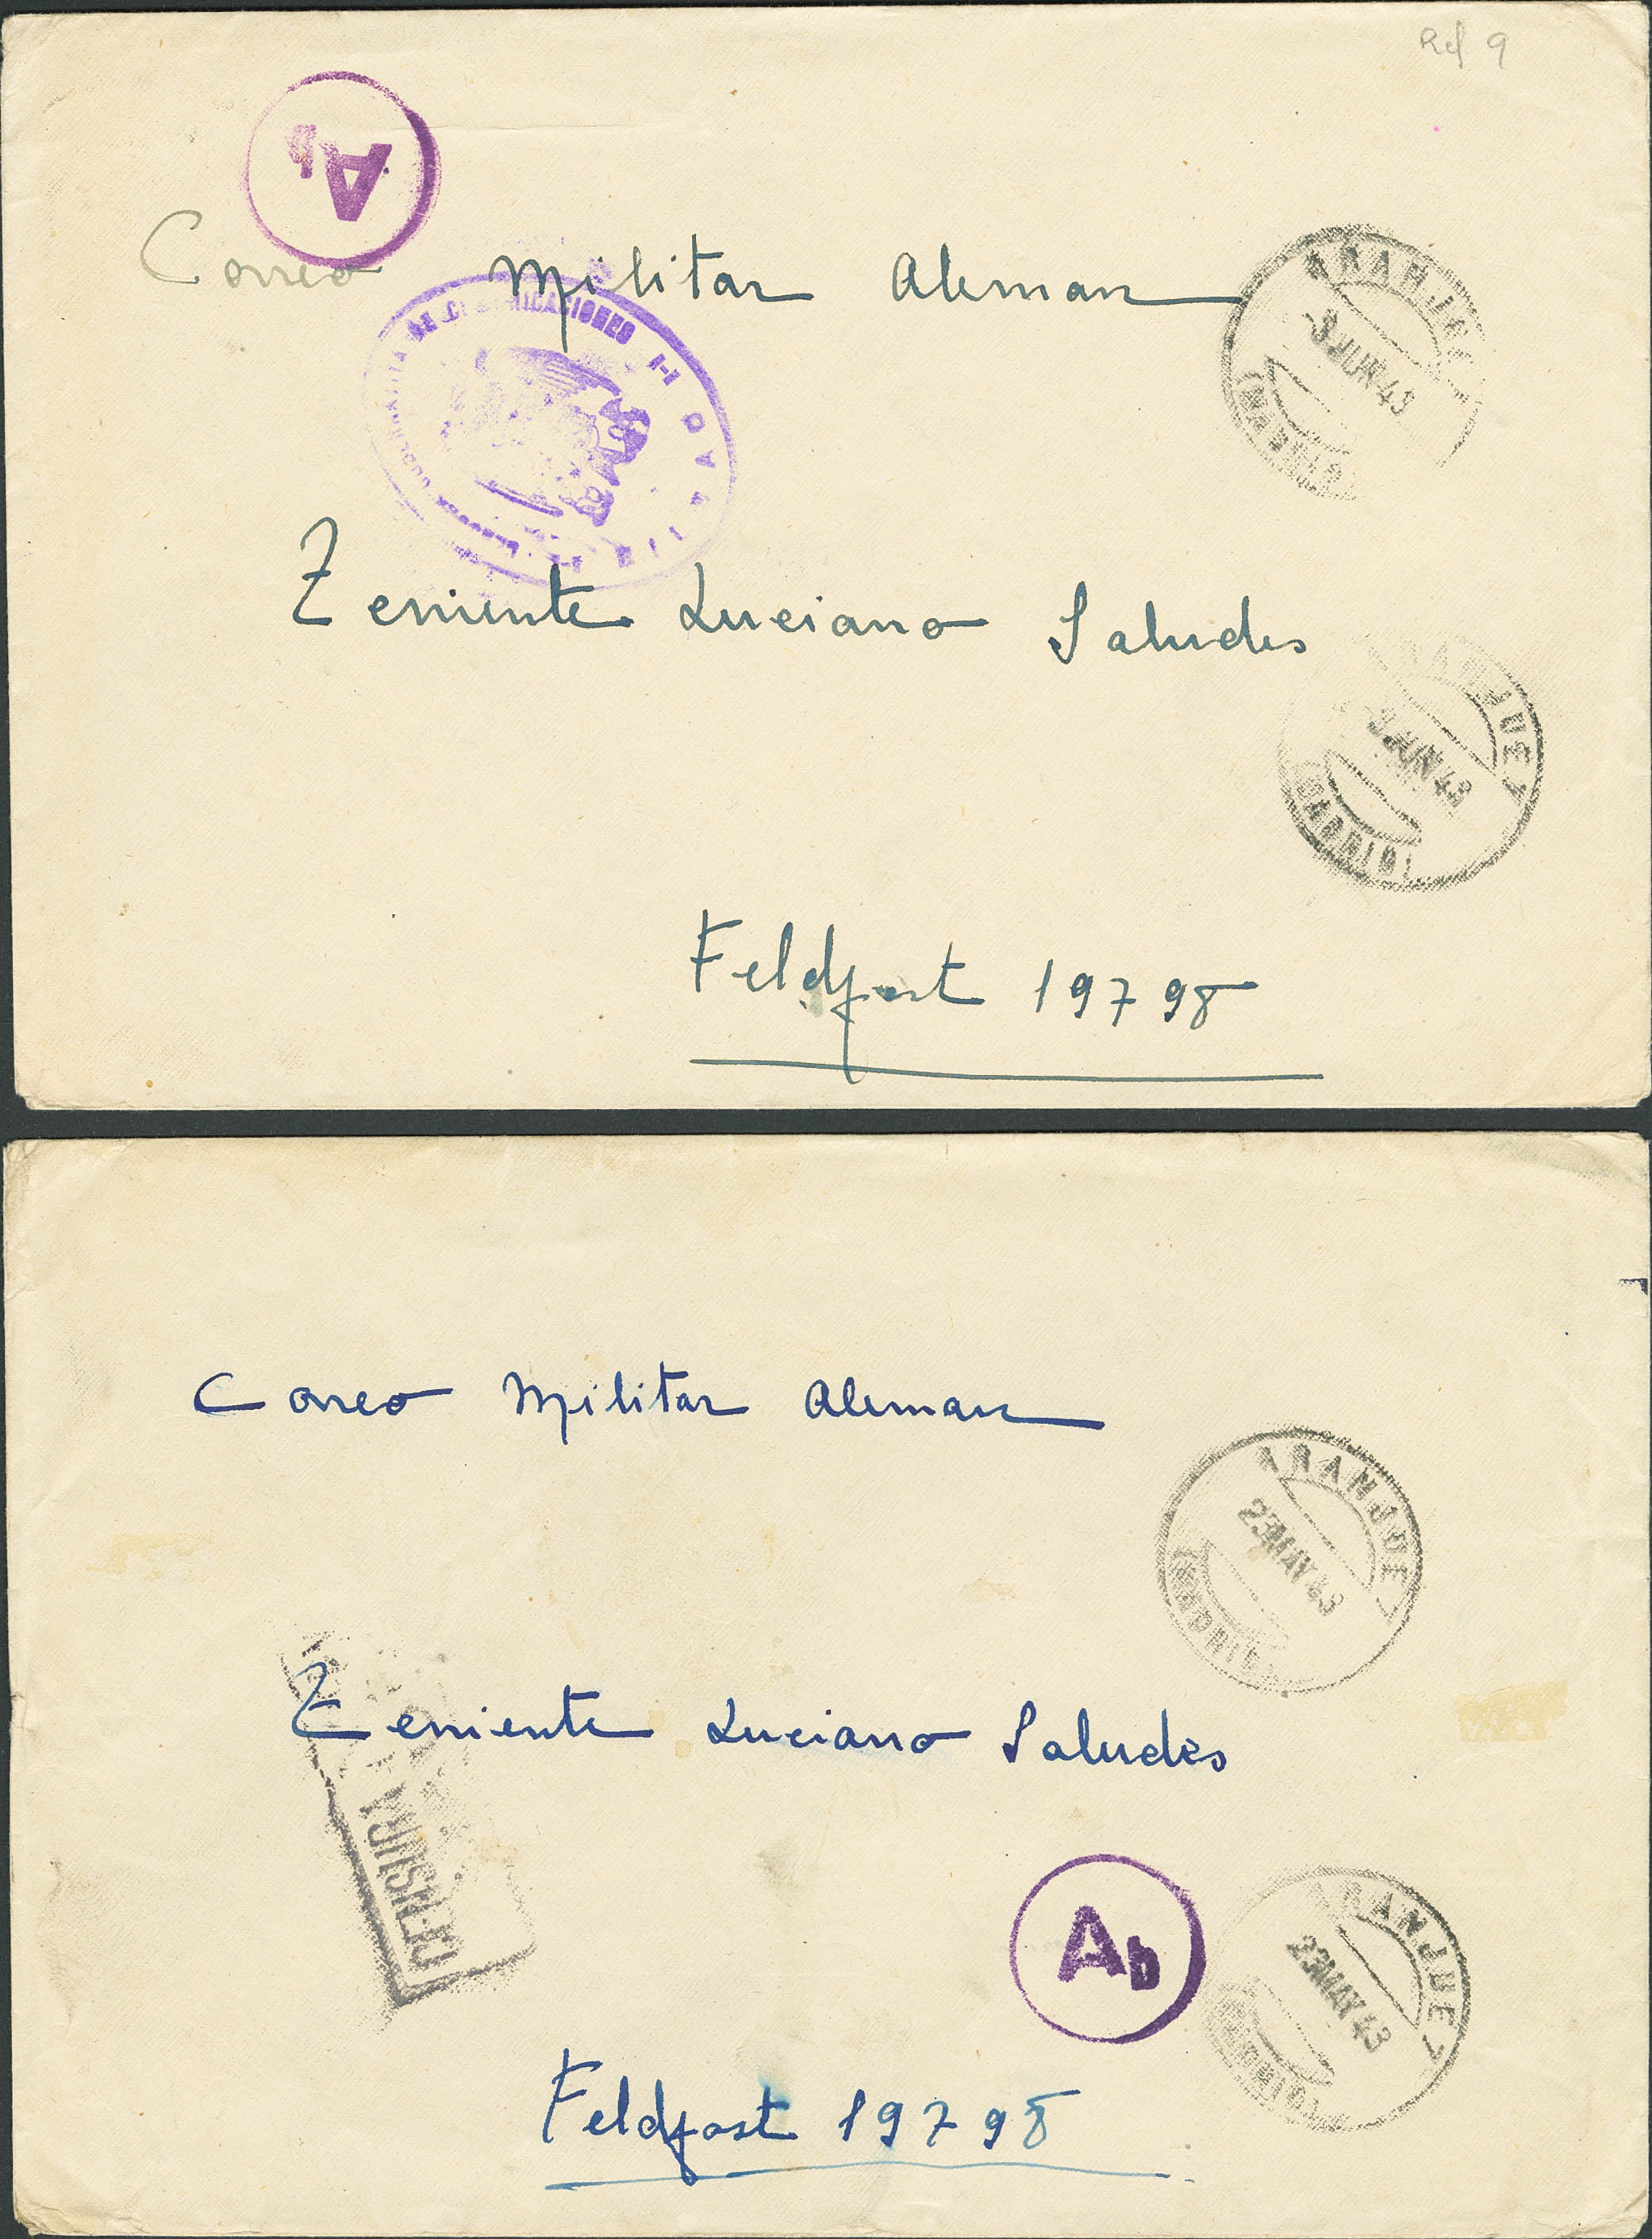 Ref 9
Ab
Correo Militar Aleman
COMUNICACIONES
ARANJUEZ
3 JUN 43
(MADRID)
Teniente Luciano Saludes
ARANJUEZ
3 JUN 43
(MADRID)
Feldpost 19798
Correo Militar Aleman
ARANJUEZ
23 MAY 43
(MADRID)
Teniente Luciano Saludes
CENSURA
Ab
ARANJUEZ
23 MAY 43
(MADRID)
Feldpost 19798